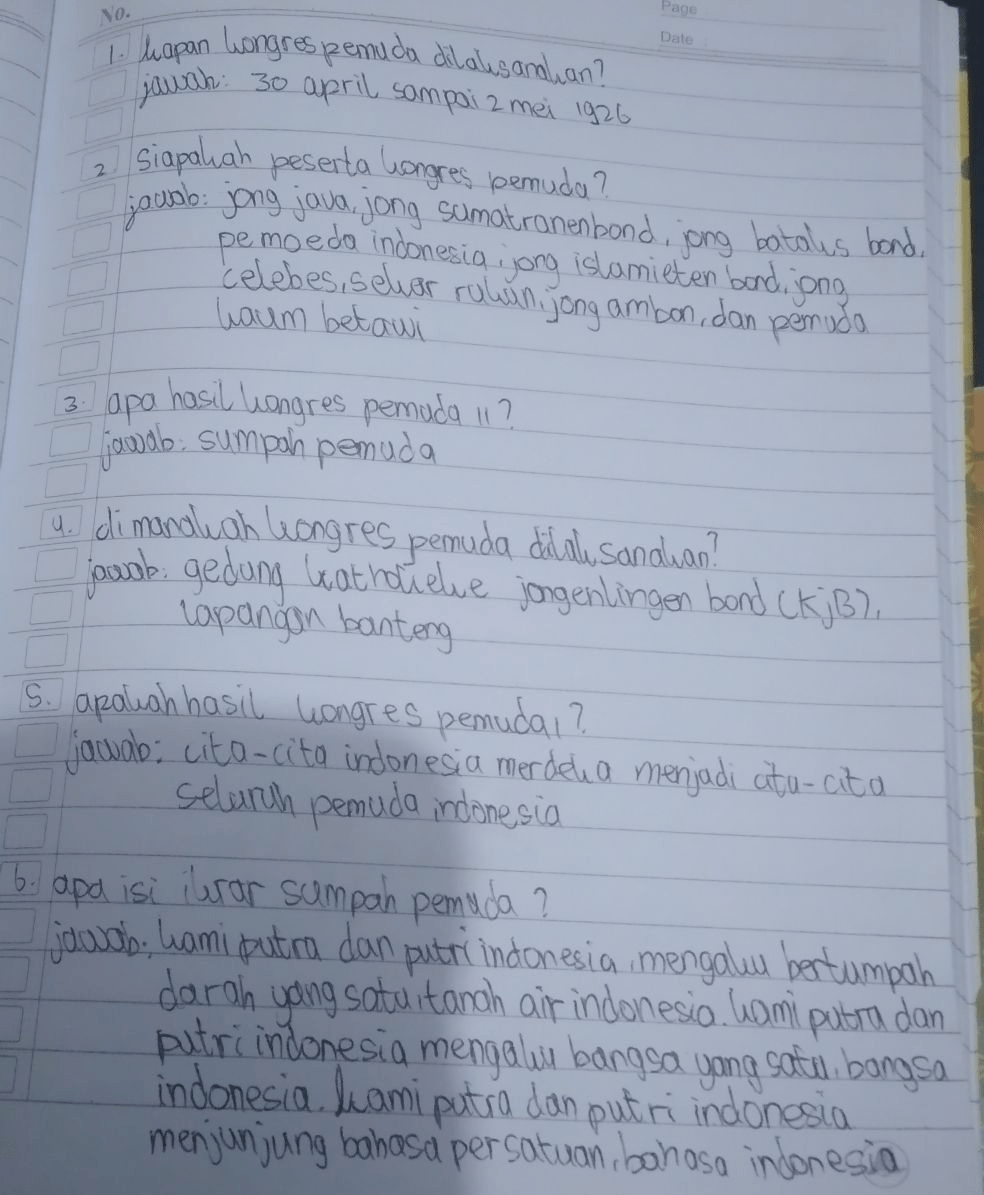 No.
Page
Date :
1. kapan kongres pemuda dilaksanakan?
jawab: 30 april sampai 2 mei 1926
2. siapakah peserta kongres pemuda?
jawab: jong java, jong sumatranenbond, jong bataks bond,
pemoeda indonesia, jong islamieten bond, jong
celebes, sekar rukun, jong ambon, dan pemuda
kaum betawi
3. apa hasil kongres pemuda 11?
jawab: sumpah pemuda
4. dimanakah kongres pemuda dilaksanakan?
jawab: gedung katholieke jongenlingen bond (KjB),
lapangan banteng
5. apakah hasil kongres pemuda 1?
jawab: cita-cita indonesia merdeka menjadi cita-cita
seluruh pemuda indonesia
6. apa isi ikrar sumpah pemuda?
jawab: kami putra dan putri indonesia, mengaku bertumpah
darah yang satu, tanah air indonesia. kami putra dan
putri indonesia mengaku bangsa yang satu, bangsa
indonesia. kami putra dan putri indonesia
menjunjung bahasa persatuan, bahasa indonesia